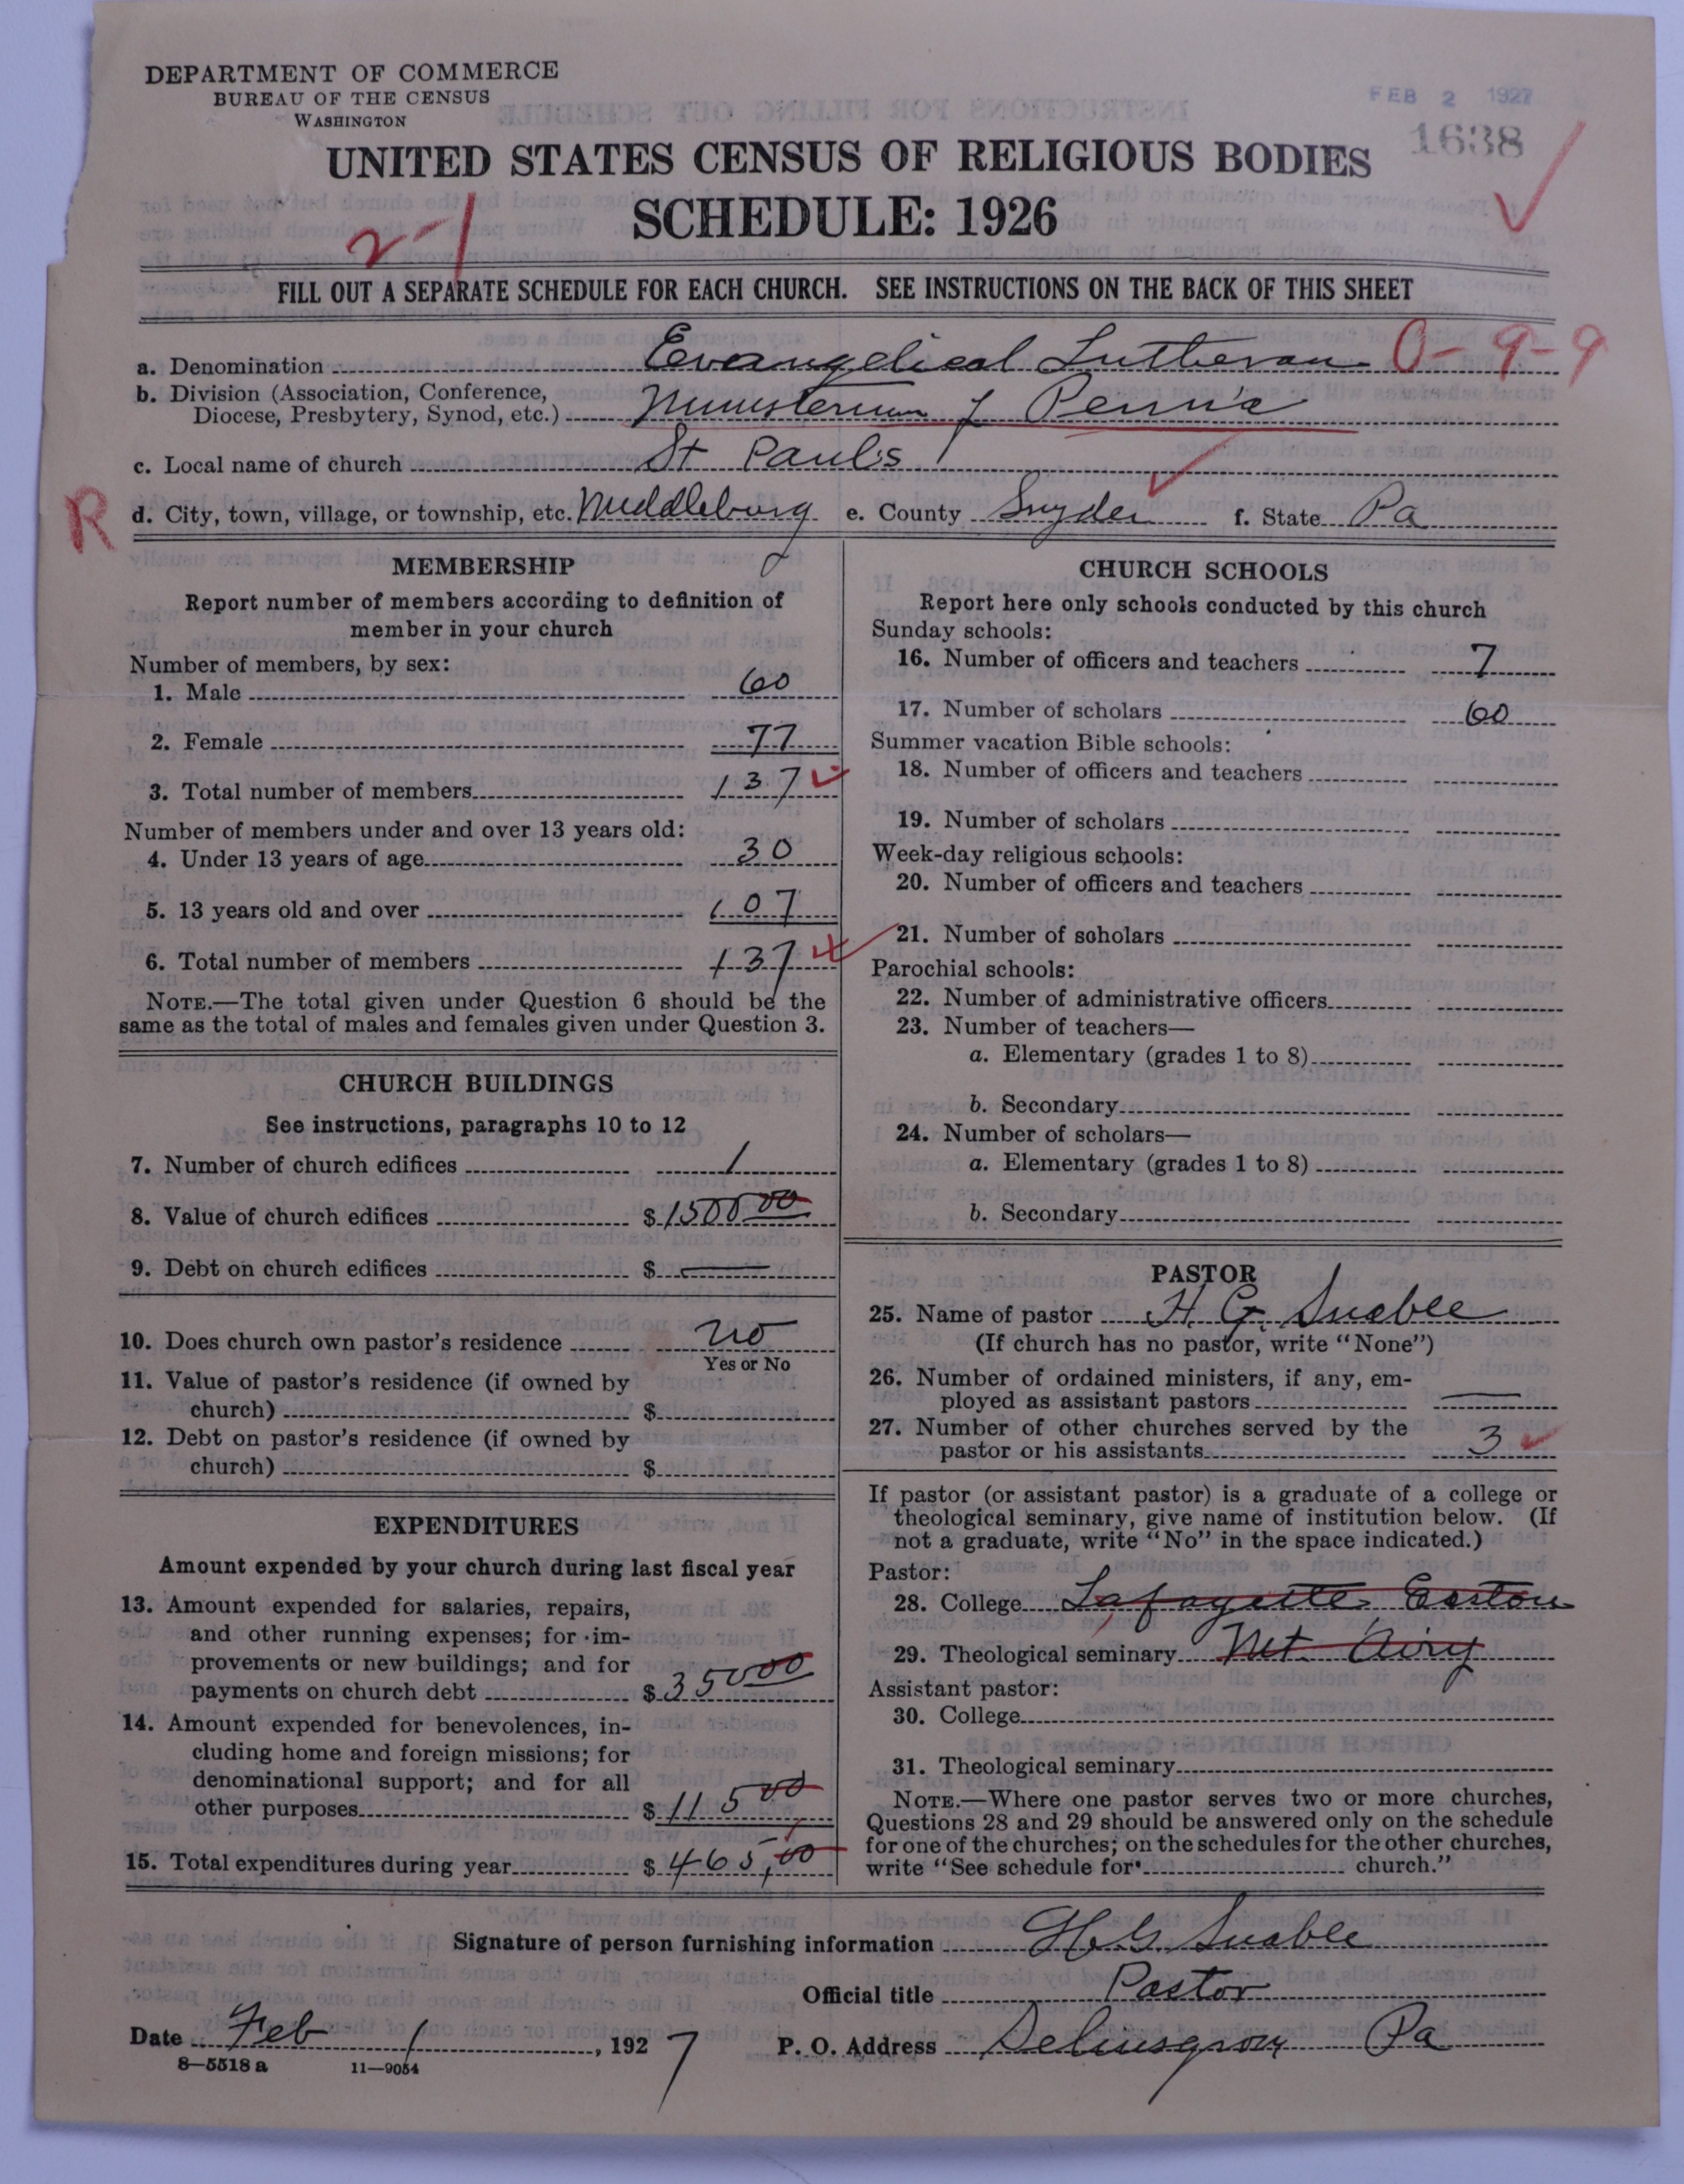 DEPARTMENT OF COMMERCE
BUREAU OF THE CENSUS
WASHINGTON
FEB 2 1927
1638
UNITED STATES CENSUS OF RELIGIOUS BODIES
SCHEDULE: 1926
2-1
FILL OUT A SEPARATE SCHEDULE FOR EACH CHURCH. SEE INSTRUCTIONS ON THE BACK OF THIS SHEET
a. Denomination Evangelical Lutheran 0-9-9
b. Division (Association, Conference,
Diocese, Presbytery, Synod, etc.) Ministerium of Penn'a
c. Local name of church St Paul's
R d. City, town, village, or township, etc. Middleburg e. County Snyder f. State Pa
MEMBERSHIP
Report number of members according to definition of
member in your church
Number of members, by sex:
1. Male 60
2. Female 77
3. Total number of members 137
Number of members under and over 13 years old:
4. Under 13 years of age 30
5. 13 years old and over 107
6. Total number of members 137
NOTE.—The total given under Question 6 should be the
same as the total of males and females given under Question 3.
CHURCH BUILDINGS
See instructions, paragraphs 10 to 12
7. Number of church edifices 1
8. Value of church edifices $1500 00
9. Debt on church edifices $ —
10. Does church own pastor's residence no
Yes or No
11. Value of pastor's residence (if owned by
church) $
12. Debt on pastor's residence (if owned by
church) $
EXPENDITURES
Amount expended by your church during last fiscal year
13. Amount expended for salaries, repairs,
and other running expenses; for im-
provements or new buildings; and for
payments on church debt $350 00
14. Amount expended for benevolences, in-
cluding home and foreign missions; for
denominational support; and for all
other purposes $115 00
15. Total expenditures during year $465,00
CHURCH SCHOOLS
Report here only schools conducted by this church
Sunday schools:
16. Number of officers and teachers 7
17. Number of scholars 60
Summer vacation Bible schools:
18. Number of officers and teachers
19. Number of scholars
Week-day religious schools:
20. Number of officers and teachers
21. Number of scholars
Parochial schools:
22. Number of administrative officers
23. Number of teachers—
a. Elementary (grades 1 to 8)
b. Secondary
24. Number of scholars—
a. Elementary (grades 1 to 8)
b. Secondary
PASTOR
25. Name of pastor H. G. Snable
(If church has no pastor, write "None")
26. Number of ordained ministers, if any, em-
ployed as assistant pastors —
27. Number of other churches served by the
pastor or his assistants 3
If pastor (or assistant pastor) is a graduate of a college or
theological seminary, give name of institution below. (If
not a graduate, write "No" in the space indicated.)
Pastor:
28. College Lafayette, Easton
29. Theological seminary Mt. Airy
Assistant pastor:
30. College
31. Theological seminary
NOTE.—Where one pastor serves two or more churches,
Questions 28 and 29 should be answered only on the schedule
for one of the churches; on the schedules for the other churches,
write "See schedule for church."
Signature of person furnishing information H. G. Snable
Official title Pastor
Date Feb 1, 1927 P. O. Address Selinsgrove Pa
8—5518 a 11—9054